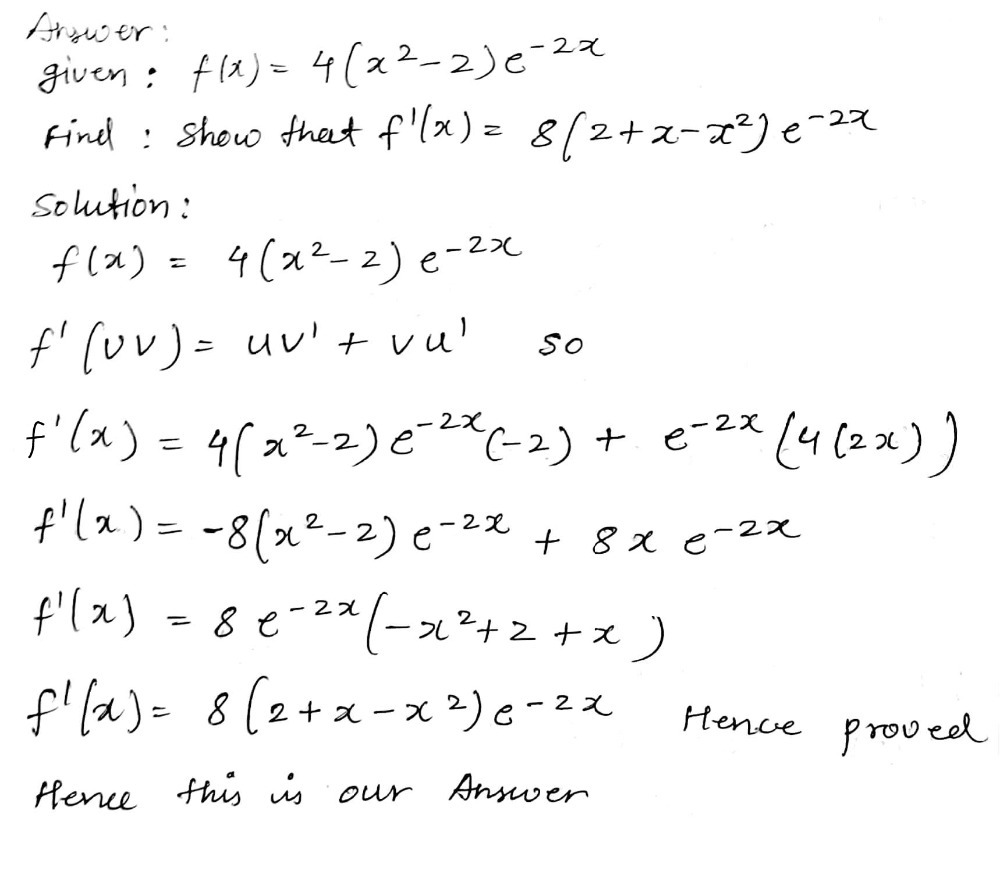 Answer:
given : f(x) = 4(x²-2)e⁻²ˣ
Find : Show that f'(x) = 8(2+x-x²)e⁻²ˣ
Solution:
f(x) = 4(x²-2)e⁻²ˣ
f'(uv) = uv' + vu' so
f'(x) = 4(x²-2)e⁻²ˣ(-2) + e⁻²ˣ(4(2x))
f'(x) = -8(x²-2)e⁻²ˣ + 8xe⁻²ˣ
f'(x) = 8e⁻²ˣ(-x²+2+x)
f'(x) = 8(2+x-x²)e⁻²ˣ Hence proved
Hence this is our Answer